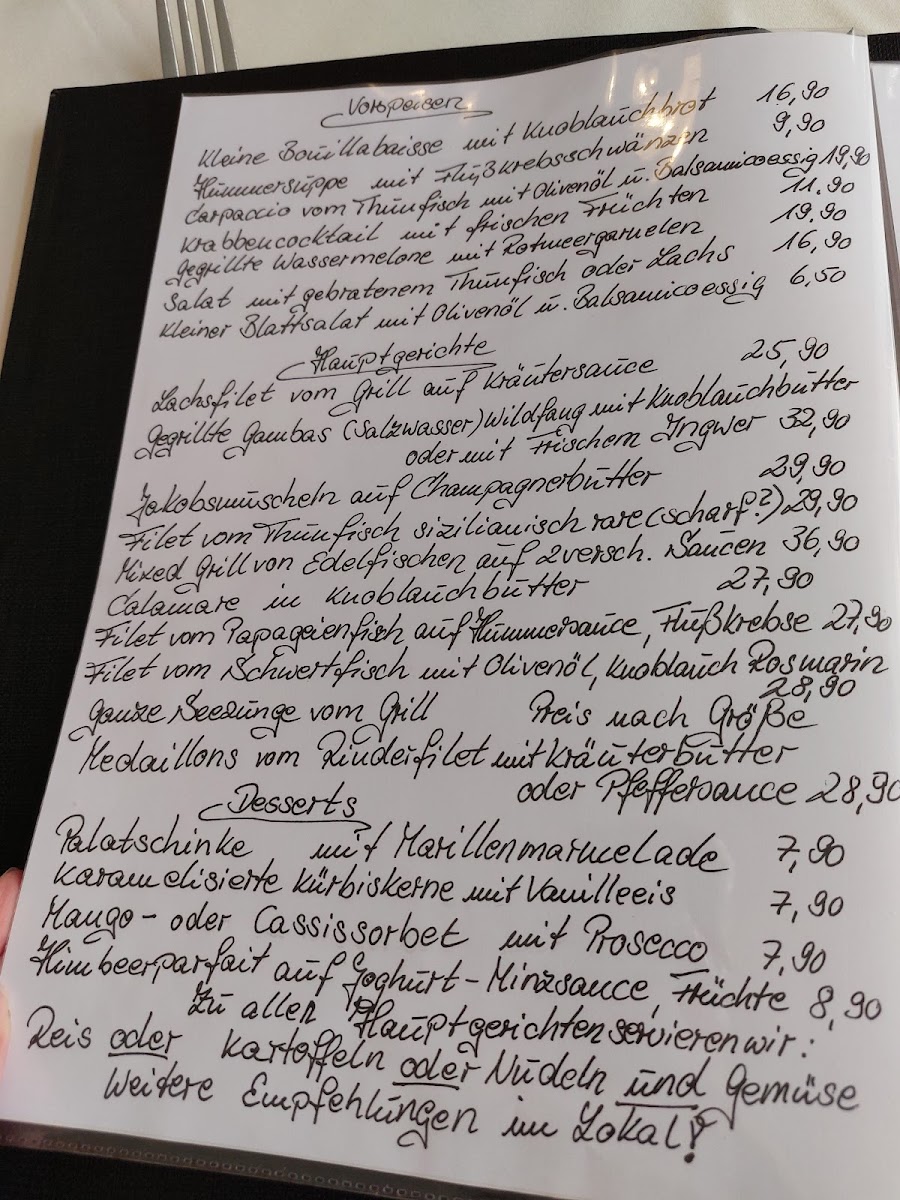 Vorspeisen
Kleine Bouillabaisse mit Knoblauchbrot 16,90
Hummersuppe mit Flußkrebsschwänzen 9,90
Carpaccio vom Thunfisch mit Olivenöl u. Balsamicoessig 19,90
Krabbencocktail mit frischen Früchten 11.90
gegrillte Wassermelone mit Rotmeergarnelen 19.90
Salat mit gebratenem Thunfisch oder Lachs 16,90
Kleiner Blattsalat mit Olivenöl u. Balsamicoessig 6,50
Hauptgerichte
Lachsfilet vom Grill auf Kräutersauce 25,90
gegrillte Gambas (Salzwasser) Wildfang mit Knoblauchbutter
oder mit Frischem Ingwer 32,90
Jakobsmuscheln auf Champagnerbutter 29,90
Filet vom Thunfisch sizilianisch rare (scharf?) 29,90
Mixed Grill von Edelfischen auf 2 versch. Saucen 36,90
Calamare in Knoblauchbutter 27,90
Filet vom Papageienfisch auf Hummersauce, Flußkrebse 27,90
Filet vom Schwertfisch mit Olivenöl, Knoblauch Rosmarin
28,90
ganze Seezunge vom Grill Preis nach Größe
Medaillons vom Rinderfilet mit Kräuterbutter
oder Pfeffersauce 28,90
Desserts
Palatschinke mit Marillenmarmelade 7,90
Karamelisierte Kürbiskerne mit Vanilleeis 7,90
Mango- oder Cassissorbet mit Prosecco 7,90
Himbeerparfait auf Joghurt-Minzsauce, Früchte 8,90
Zu allen Hauptgerichten servieren wir:
Reis oder Kartoffeln oder Nudeln und Gemüse
Weitere Empfehlungen im Lokal!